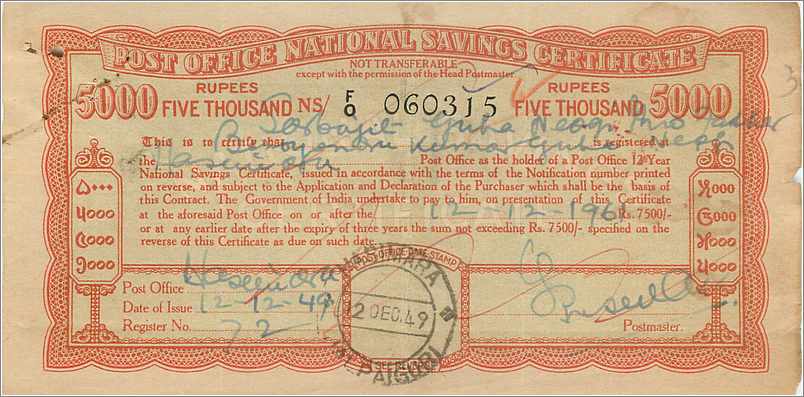 POST OFFICE NATIONAL SAVINGS CERTIFICATE
NOT TRANSFERABLE
except with the permission of the Head Postmaster.
5000 RUPEES FIVE THOUSAND NS/ F/Q 060315 RUPEES FIVE THOUSAND 5000
This is to certify that Sarbajit Guha Neogi is registered at
the Post Office as the holder of a Post Office 12 Year
National Savings Certificate, issued in accordance with the terms of the Notification number printed
on reverse, and subject to the Application and Declaration of the Purchaser which shall be the basis of
this Contract. The Government of India undertake to pay to him, on presentation of this Certificate
at the aforesaid Post Office on or after the 12-12-1961 Rs. 7500/-
or at any earlier date after the expiry of three years the sum not exceeding Rs. 7500/- specified on the
reverse of this Certificate as due on such date.
५०००
POST OFFICE DATE-STAMP
Post Office Hasimara
Date of Issue 12-12-49
Register No. 72
HASIMARA
12 DEC. 49
JALPAIGURI
Postmaster.